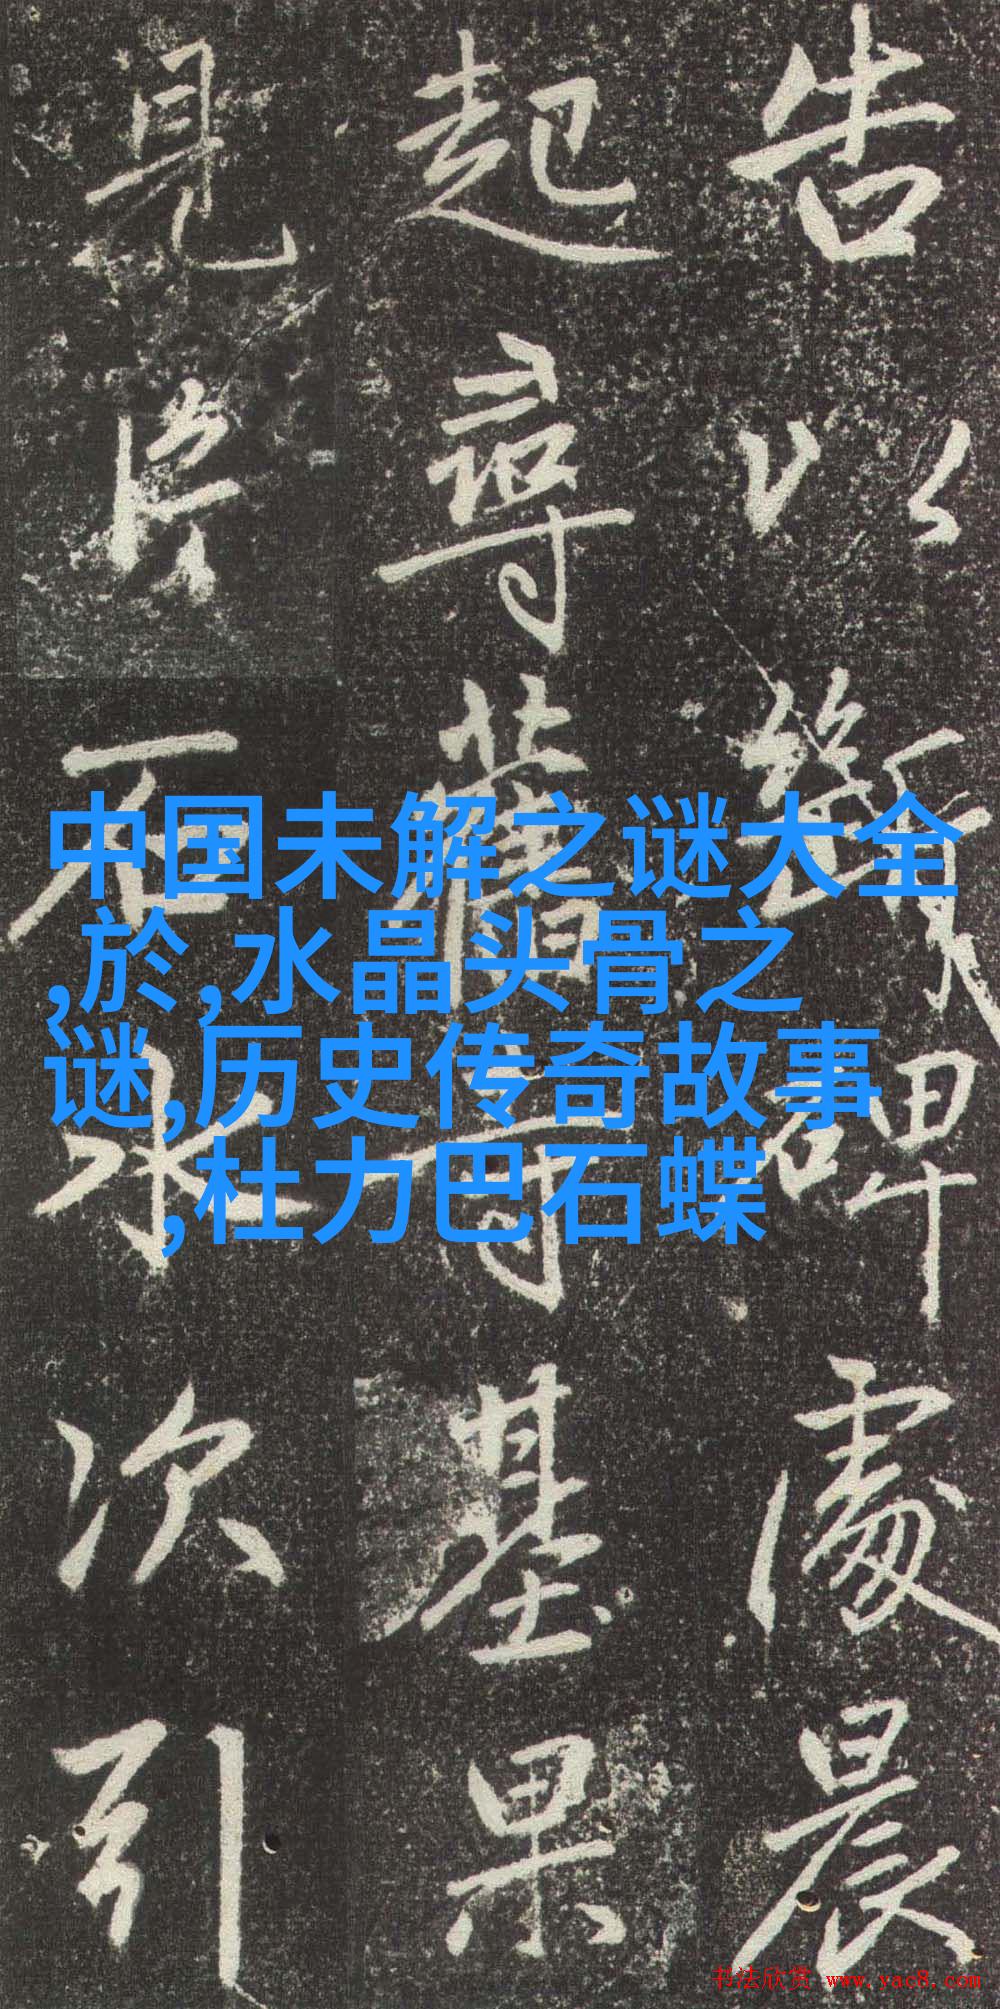 告以碑處晨
起尋舊寺基果
見片石水次引
中国未解之谜大全
,於,水晶头骨之
谜,历史传奇故事
,杜力巴石蝶
书法欣赏 www.yac8.com